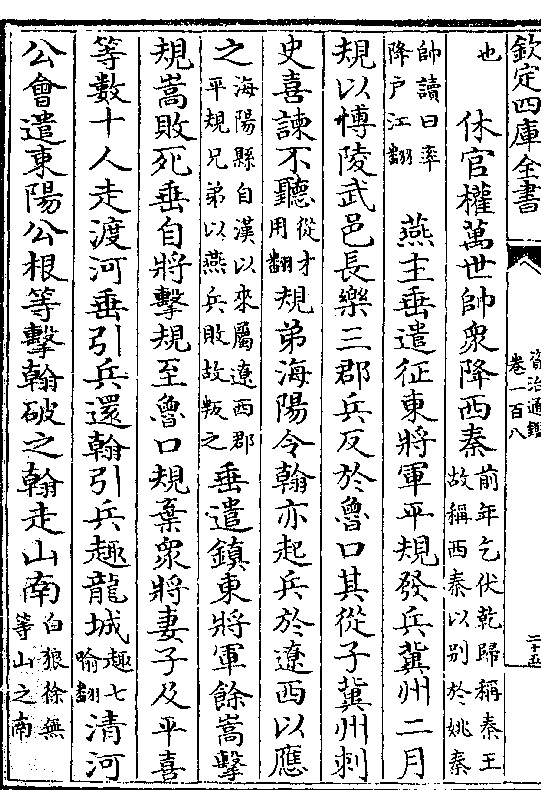 欽定四庫全書
資治通鑑
卷一百八
二十五
也
休官權萬世帥衆降西秦
前年乞伏乾歸稱秦王
故稱西秦以别於姚秦
帥讀曰率
降户江翻
燕主垂遣征東將軍平規發兵冀州二月
規以愽陵武邑長樂三郡兵反於魯口其從子冀州刺
史喜諫不聽
從才
用翻
規弟海陽令翰亦起兵於遼西以應
之
海陽縣自漢以來屬遼西郡
平規兄弟以燕兵敗故叛之
垂遣鎮東將軍餘嵩擊
規嵩敗死垂自將擊規至魯口規棄衆將妻子及平喜
等數十人走渡河垂引兵還翰引兵趣龍城
趣七
喻翻
清河
公會遣東陽公根等擊翰破之翰走山南
白狼徐無
等山之南